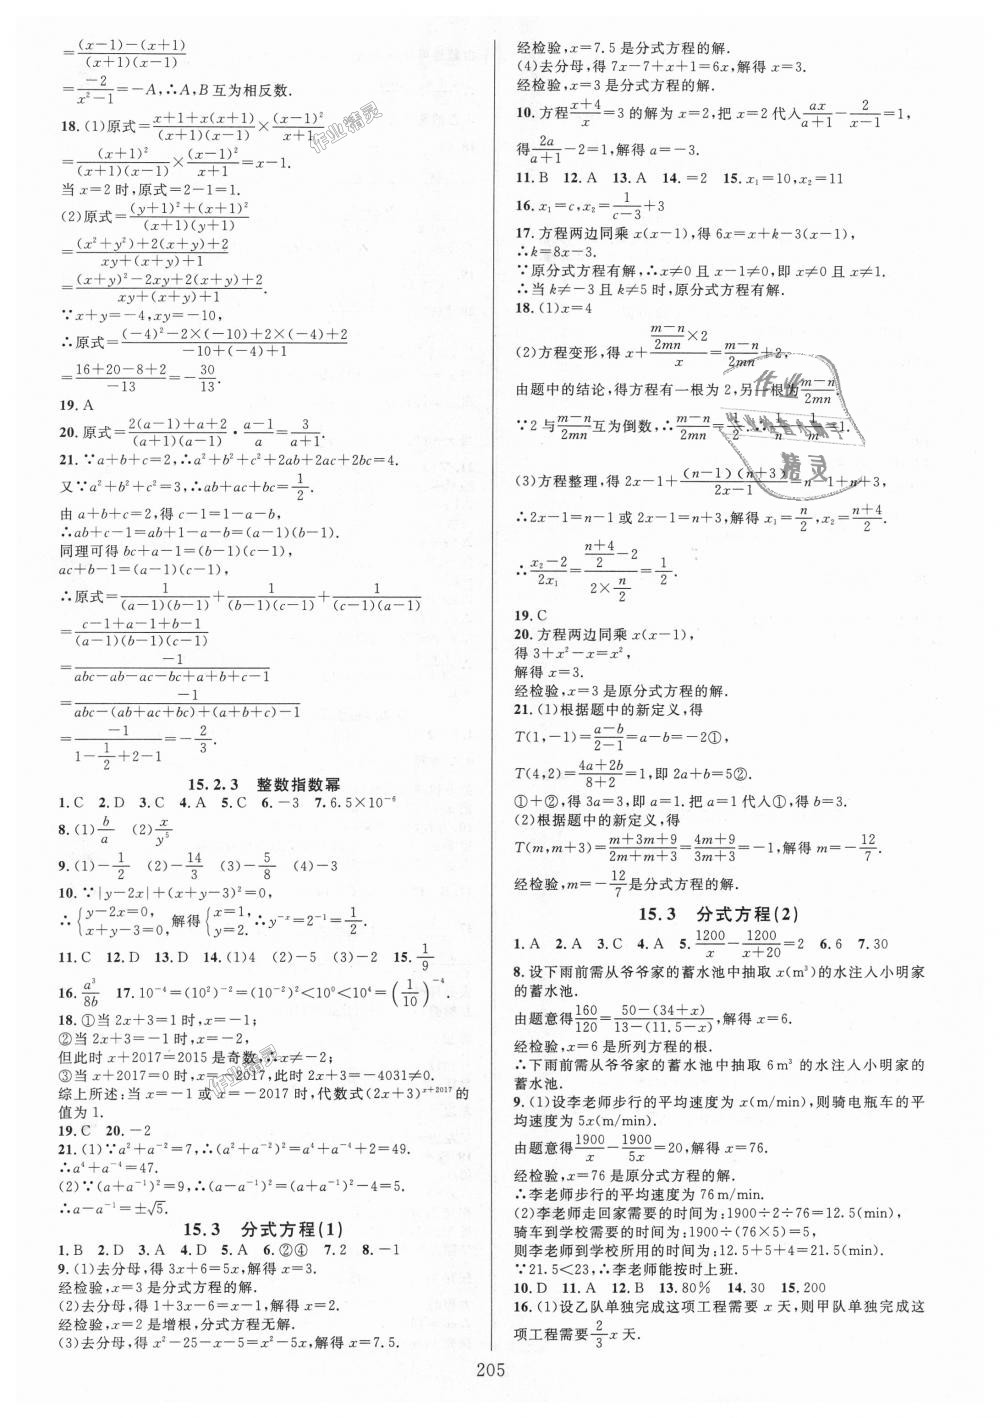 =\frac{(x-1)-(x+1)}{(x+1)(x-1)}
=\frac{-2}{x²-1}=-A,∴A,B互为相反数.
18.(1)原式=\frac{x+1+x(x+1)}{(x+1)(x-1)}×\frac{(x-1)²}{x+1}
=\frac{(x+1)²}{(x+1)(x-1)}×\frac{(x-1)²}{x+1}=x-1.
当x=2时,原式=2-1=1.
(2)原式=\frac{(y+1)²+(x+1)²}{(x+1)(y+1)}
=\frac{(x²+y²)+2(x+y)+2}{xy+(x+y)+1}
=\frac{(x+y)²-2xy+2(x+y)+2}{xy+(x+y)+1}.
∵x+y=-4,xy=-10,
∴原式=\frac{(-4)²-2×(-10)+2×(-4)+2}{-10+(-4)+1}
=\frac{16+20-8+2}{-13}=-\frac{30}{13}.
19.A
20.原式=\frac{2(a-1)+a+2}{(a+1)(a-1)}·\frac{a-1}{a}=\frac{3}{a+1}.
21.∵a+b+c=2,∴a²+b²+c²+2ab+2ac+2bc=4.
又∵a²+b²+c²=3,∴ab+ac+bc=\frac{1}{2}.
由a+b+c=2,得c-1=1-a-b,
∴ab+c-1=ab+1-a-b=(a-1)(b-1).
同理可得bc+a-1=(b-1)(c-1),
ac+b-1=(a-1)(c-1),
∴原式=\frac{1}{(a-1)(b-1)}+\frac{1}{(b-1)(c-1)}+\frac{1}{(c-1)(a-1)}
=\frac{c-1+a-1+b-1}{(a-1)(b-1)(c-1)}
=\frac{-1}{abc-ab-ac-bc+a+b+c-1}
=\frac{-1}{abc-(ab+ac+bc)+(a+b+c)-1}
=\frac{-1}{1-\frac{1}{2}+2-1}=-\frac{2}{3}.
15.2.3 整数指数幂
1.C 2.D 3.C 4.A 5.C 6.-3 7.6.5×10⁻⁶
8.(1)\frac{b}{a} (2)\frac{x}{y⁵}
9.(1)-\frac{1}{2} (2)-\frac{14}{3} (3)-\frac{5}{8} (4)-3
10.∵|y-2x|+(x+y-3)²=0,
∴{y-2x=0, x+y-3=0, 解得{x=1, y=2. ∴y⁻ˣ=2⁻¹=\frac{1}{2}.
11.C 12.D 13.D 14.(1)4 (2)-5 (3)-2 15.\frac{1}{9}
16.\frac{a³}{8b} 17.10⁻⁴=(10²)⁻²=(10⁻²)²<10⁰<10⁴=(\frac{1}{10})⁻⁴.
18.①当2x+3=1时,x=-1;
②当2x+3=-1时,x=-2,
但此时x+2017=2015是奇数,∴x≠-2;
③当x+2017=0时,x=-2017,此时2x+3=-4031≠0.
综上所述:当x=-1或x=-2017时,代数式(2x+3)ˣ⁺²⁰¹⁷的
值为1.
19.C 20.-2
21.(1)∵a²+a⁻²=7,∴(a²+a⁻²)²=a⁴+a⁻⁴+2=49.
∴a⁴+a⁻⁴=47.
(2)∵(a+a⁻¹)²=9,∴(a-a⁻¹)²=(a+a⁻¹)²-4=5.
∴a-a⁻¹=±√5.
15.3 分式方程(1)
1.B 2.B 3.C 4.D 5.A 6.②④ 7.2 8.-1
9.(1)去分母,得3x+6=5x,解得x=3.
经检验,x=3是分式方程的解.
(2)去分母,得1+3x-6=x-1,解得x=2.
经检验,x=2是增根,分式方程无解.
(3)去分母,得x²-25-x-5=x²-5x,解得x=7.5.
经检验,x=7.5是分式方程的解.
(4)去分母,得7x-7+x+1=6x,解得x=3.
经检验,x=3是分式方程的解.
10.方程\frac{x+4}{x}=3的解为x=2,把x=2代入\frac{ax}{a+1}-\frac{2}{x-1}=1,
得\frac{2a}{a+1}-2=1,解得a=-3.
11.B 12.A 13.A 14.=2 15.x₁=10,x₂=11
16.x₁=c,x₂=\frac{1}{c-3}+3
17.方程两边同乘x(x-1),得6x=x+k-3(x-1),
∴k=8x-3.
∵原分式方程有解,∴x≠0且x-1≠0,即x≠0且x≠1.
∴当k≠-3且k≠5时,原分式方程有解.
18.(1)x=4
(2)方程变形,得x+\frac{\frac{m-n}{2mn}×2}{x}=\frac{m-n}{2mn}+2,
由题中的结论,得方程有一根为2,另一根为\frac{m-n}{2mn}
∵2与\frac{m-n}{2mn}互为倒数,∴\frac{m-n}{2mn}=\frac{1}{2}.∴\frac{1}{n}-\frac{1}{m}=1.
(3)方程整理,得2x-1+\frac{(n-1)(n+3)}{2x-1}=n-1+n+3,
∴2x-1=n-1或2x-1=n+3,解得x₁=\frac{n}{2},x₂=\frac{n+4}{2}.
∴\frac{x₂-2}{2x₁}=\frac{\frac{n+4}{2}-2}{2×\frac{n}{2}}=\frac{1}{2}.
19.C
20.方程两边同乘x(x-1),
得3+x²-x=x²,
解得x=3.
经检验,x=3是原分式方程的解.
21.(1)根据题中的新定义,得
T(1,-1)=\frac{a-b}{2-1}=a-b=-2①,
T(4,2)=\frac{4a+2b}{8+2}=1,即2a+b=5②.
①+②,得3a=3,即a=1.把a=1代入①,得b=3.
(2)根据题中的新定义,得
T(m,m+3)=\frac{m+3m+9}{2m+m+3}=\frac{4m+9}{3m+3}=-1,解得m=-\frac{12}{7}.
经检验,m=-\frac{12}{7}是分式方程的解.
15.3 分式方程(2)
1.A 2.A 3.C 4.A 5.\frac{1200}{x}-\frac{1200}{x+20}=2 6.6 7.30
8.设下雨前需从爷爷家的蓄水池中抽取x(m³)的水注入小明家
的蓄水池.
由题意得\frac{160}{120}=\frac{50-(34+x)}{13-(11.5-x)},解得x=6.
经检验,x=6是所列方程的根.
∴下雨前需从爷爷家的蓄水池中抽取6m³的水注入小明家的
蓄水池.
9.(1)设李老师步行的平均速度为x(m/min),则骑电瓶车的平
均速度为5x(m/min).
由题意得\frac{1900}{x}-\frac{1900}{5x}=20,解得x=76.
经检验,x=76是原分式方程的解.
∴李老师步行的平均速度为76m/min.
(2)李老师走回家需要的时间为:1900÷2÷76=12.5(min),
骑车到学校需要的时间为:1900÷(76×5)=5,
则李老师到学校所用的时间为:12.5+5+4=21.5(min).
∵21.5<23,∴李老师能按时上班.
10.D 11.A 12.B 13.80% 14.30 15.200
16.(1)设乙队单独完成这项工程需要x天,则甲队单独完成这
项工程需要\frac{2}{3}x天.
205
作业精灵
作业精灵
作业
精灵